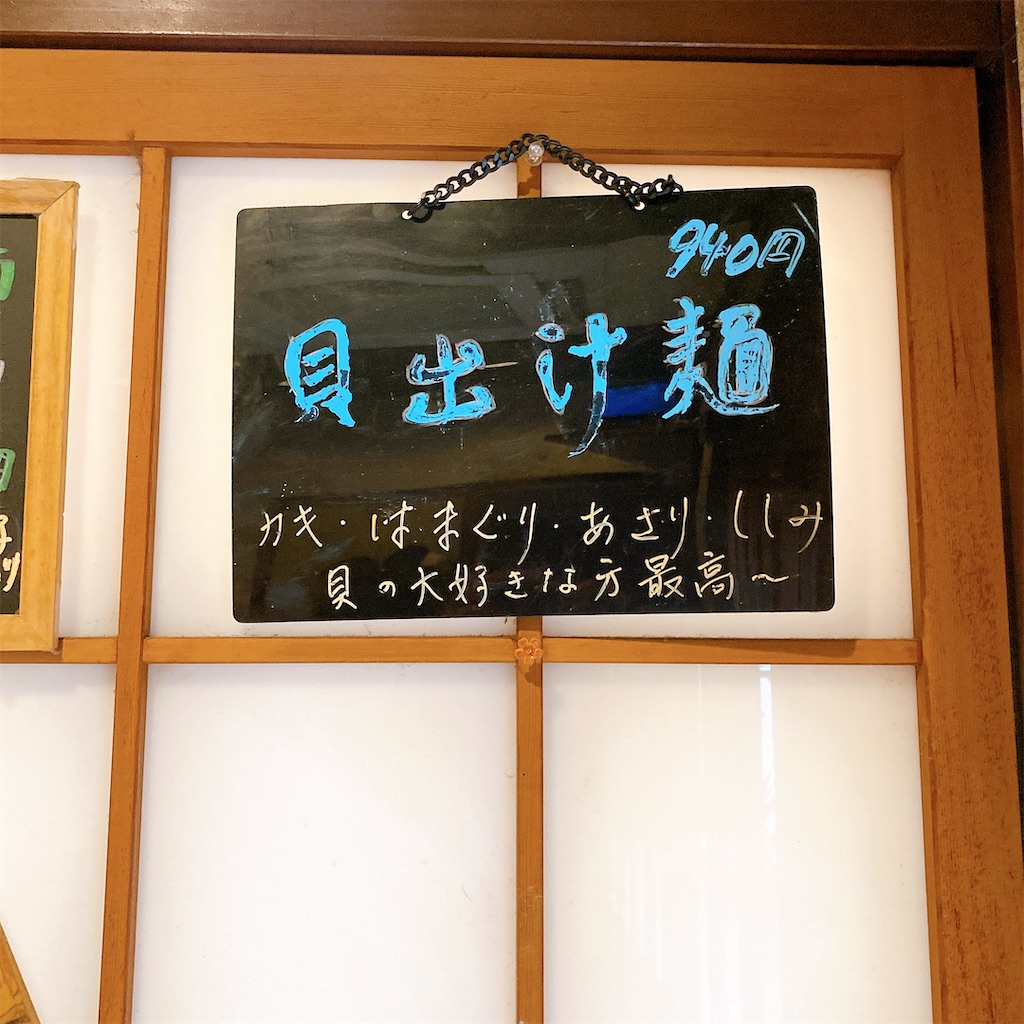 940円
貝出汁麺
カキ・はまぐり・あさり・しじみ
貝の大好きな方最高〜